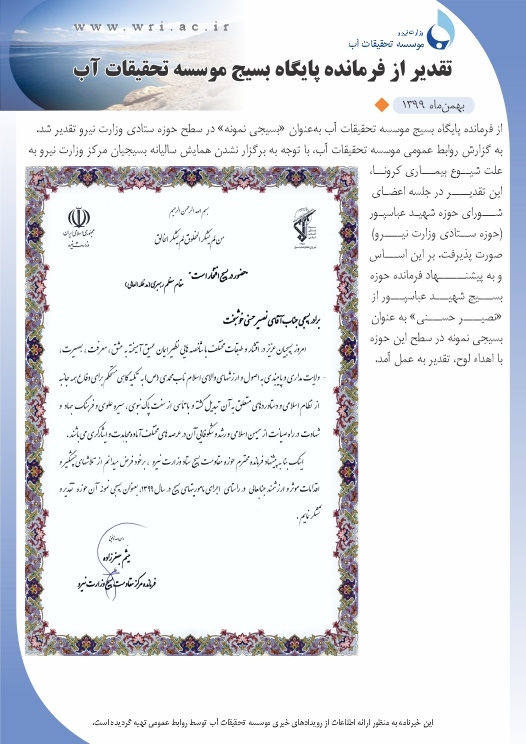 www.wri.ac.ir
وزارت نیرو
موسسه تحقیقات آب
تقدیر از فرمانده پایگاه بسیج موسسه تحقیقات آب
بهمن‌ماه ۱۳۹۹
از فرمانده پایگاه بسیج موسسه تحقیقات آب به‌عنوان «بسیجی نمونه» در سطح حوزه ستادی وزارت نیرو تقدیر شد.
به گزارش روابط عمومی موسسه تحقیقات آب، با توجه به برگزار نشدن همایش سالیانه بسیجیان مرکز وزارت نیرو به
علت شیوع بیماری کرونا،
این تقدیر در جلسه اعضای
شورای حوزه شهید عباسپور
(حوزه ستادی وزارت نیرو)
صورت پذیرفت. بر این اساس
و به پیشنهاد فرمانده حوزه
بسیج شهید عباسپور از
«نصیر حسنی» به عنوان
بسیجی نمونه در سطح این حوزه
با اهداء لوح، تقدیر به عمل آمد.
بسم الله الرحمن الرحیم
من لم یشکر المخلوق لم یشکر الخالق
جمهوری اسلامی ایران
وزارت نیرو
حضور در بسیج افتخار است.
مقام معظم رهبری (مد ظله العالی)
برادر بسیجی جناب آقای نصیر حسنی خوشبخت
امروز بسیجیان عزیز در اقشار و طبقات مختلف با شاخصه هایی نظیر ایمان عمیق آمیخته به عشق، معرفت، بصیرت،
ولایت مداری و پایبندی به اصول و ارزشهای والای اسلام ناب محمدی (ص) به تکیه گاهی مستحکم برای دفاع همه جانبه
از نظام اسلامی و دستاوردهای متعلق به آن تبدیل گشته و با تاسی از سنت پاک نبوی، سیره علوی و فرهنگ جهاد و
شهادت در راه صیانت از میهن اسلامی و رشد و شکوفایی آن در عرصه های مختلف آماده مجاهدت و ایثارگری می باشند.
اینک بنا به پیشنهاد فرمانده محترم حوزه مقاومت بسیج ستاد وزارت نیرو ، برخود فرض میدانم از تلاشهای پیگیر و
اقدامات موثر و ارزشمند جنابعالی در راستای اجرای ماموریتهای بسیج در سال ۱۳۹۹، بعنوان بسیجی نمونه آن حوزه تقدیر و
تشکر نمایم.
میثم جعفرزاده
فرمانده مرکز مقاومت بسیج وزارت نیرو
این خبرنامه به منظور ارائه اطلاعات از رویدادهای خبری موسسه تحقیقات آب توسط روابط عمومی تهیه گردیده است.